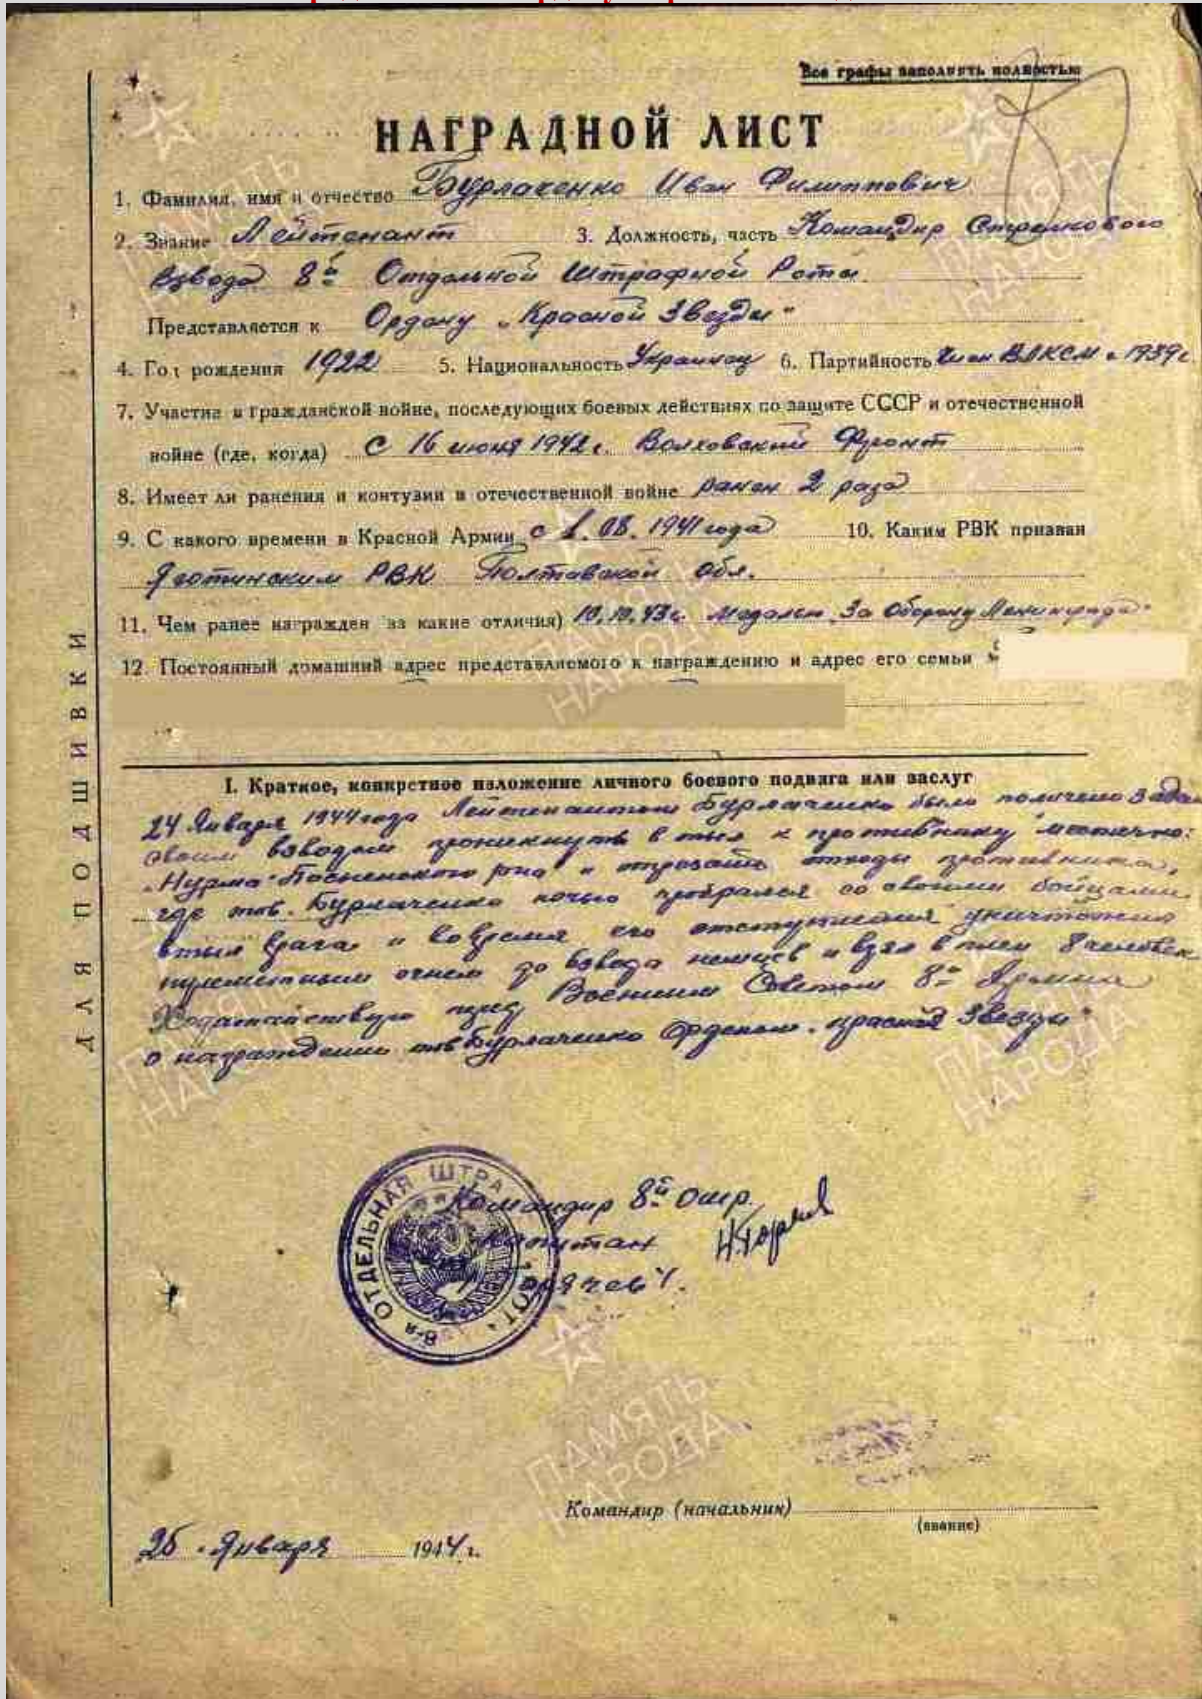 Все графы заполнять полностью
НАГРАДНОЙ ЛИСТ
1. Фамилия, имя и отчество Бурлаченко Иван Филиппович
2. Звание Лейтенант 3. Должность, часть Командир Стрелкового
взвода 8й Отдельной Штрафной Роты
Представляется к Ордену „Красной Звезды"
4. Год рождения 1922 5. Национальность Украинец 6. Партийность Член ВЛКСМ с 1939г
7. Участие в гражданской войне, последующих боевых действиях по защите СССР и отечественной
войне (где, когда) С 16 июня 1942г. Волховский Фронт
8. Имеет ли ранения и контузии в отечественной войне ранен 2 раза
9. С какого времени в Красной Армии с 08. 1941 года 10. Каким РВК призван
Яготинским РВК Полтавской обл.
11. Чем ранее награжден за какие отличия) 10.10.43г. Медалью „За Оборону Ленинграда"
12. Постоянный домашний адрес представляемого к награждению и адрес его семьи
ДЛЯ ПОДШИВКИ
I. Краткое, конкретное изложение личного боевого подвига или заслуг
24 Января 1944 года Лейтенантом Бурлаченко было получено
своим взводом проникнуть в тыл к противнику
„Нурма" Тосненского рна и отрезать отходы противника,
где тов. Бурлаченко ночью пробрался со своими бойцами
в тыл врага и во время его отступления уничтожил
пулеметным огнем до взвода немцев и взял в плен 8 человек
Ходатайствую пред Военным Советом 8й Армии
о награждении тов Бурлаченко Орденом „Красной Звезды"
8-я ОТДЕЛЬНАЯ ШТРАФ РОТА
Командир 8й ошр.
Капитан
Горячев
ПАМЯТЬ
НАРОДА
Командир (начальник)
(звание)
26 Января 1944 г.